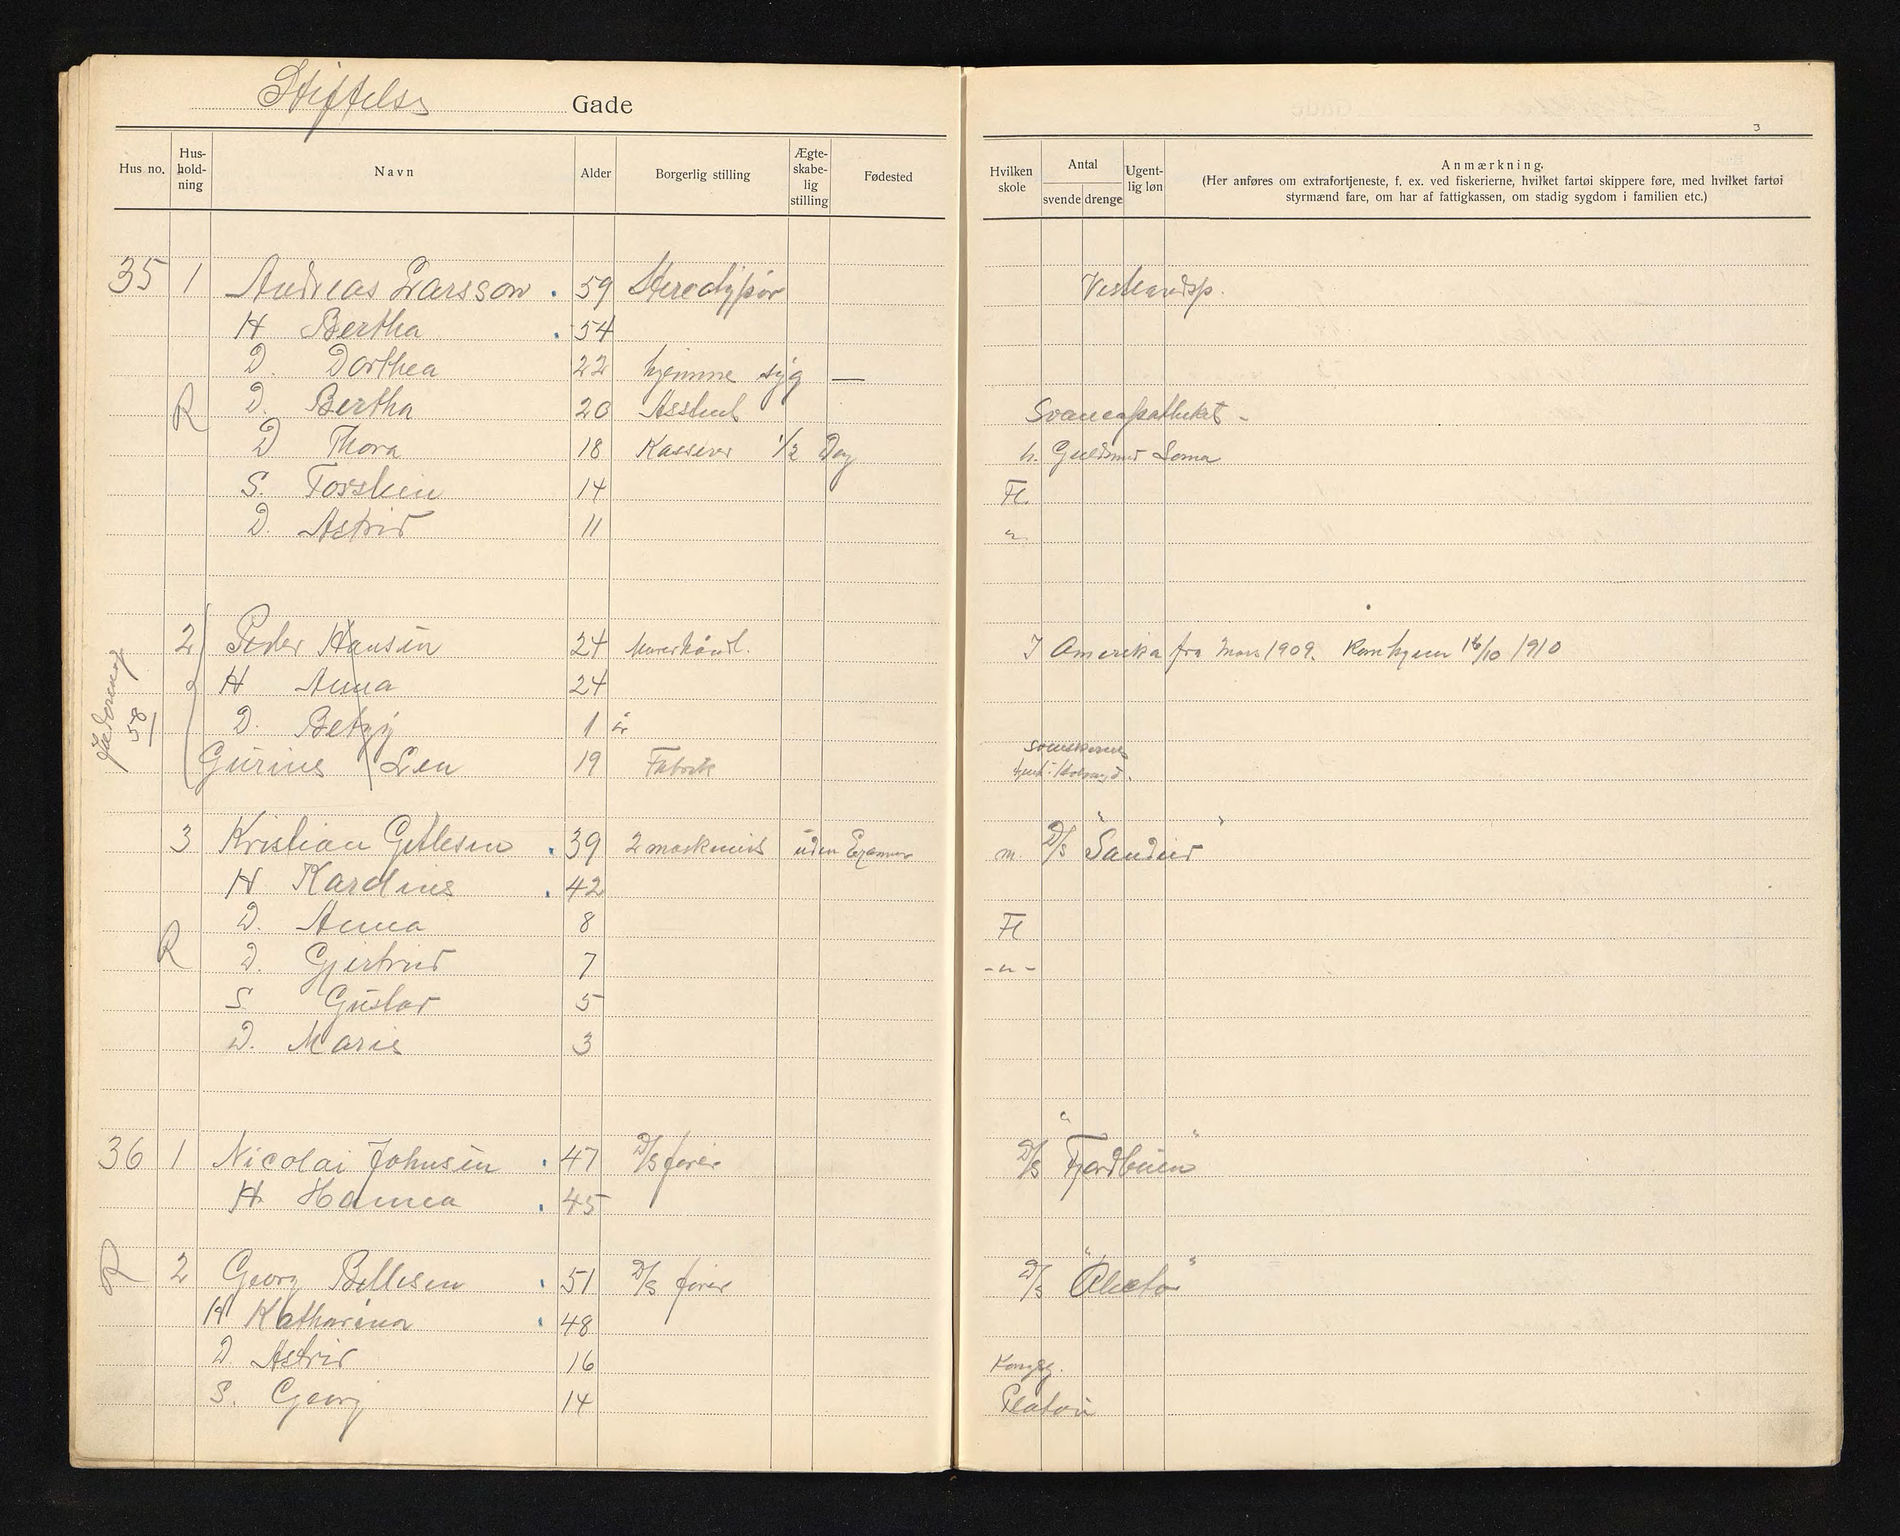 Stiftelses Gade
3
Hus no. Hus-hold-ning Navn Alder Borgerlig stilling Ægte-skabe-lig stilling Fødested Hvilken skole Antal svende drenge Ugent-lig løn Anmærkning.
(Her anføres om extrafortjeneste, f. ex. ved fiskerierne, hvilket fartøi skippere føre, med hvilket fartøi
styrmænd fare, om har af fattigkassen, om stadig sygdom i familien etc.)
35 1 Andreas Larsson . 59 Stereotypør Vestlandsp.
H Bertha . 54
D. Dorthea 22 hjemme syg —
R D. Bertha 20 Assistent Svaneapotheket -
D Thora 18 Kasserer 1/2 Dag h. Guldsmed Soma
S. Torstein 14 Fl.
D. Astrid 11 "
2 Peder Hansen 24 Murerhåndl. I Amerika fra Mars 1909. Kom hjem 16/10 1910
H Anna 24
D. Betzy 1 år
Jæderensg. 58/1
Gurine Lea 19 Fabrik
3 Kristian Gitlesen . 39 2 maskinist uden Examen m. D/S "Sandeid"
H Karoline . 42
D. Anna 8 Fl
R D. Gjertrud 7 - " -
S. Gustav 5
D. Marie 3
36 1 Nicolai Johnsen . 47 D/S fører D/S "Fjordbuen"
H. Hanna . 45
R 2 Georg Bellesen . 51 D/S fører D/S "Alector"
H Katharina . 48
D Astrid 16 Kongsg.
S. Georg 14 Platou